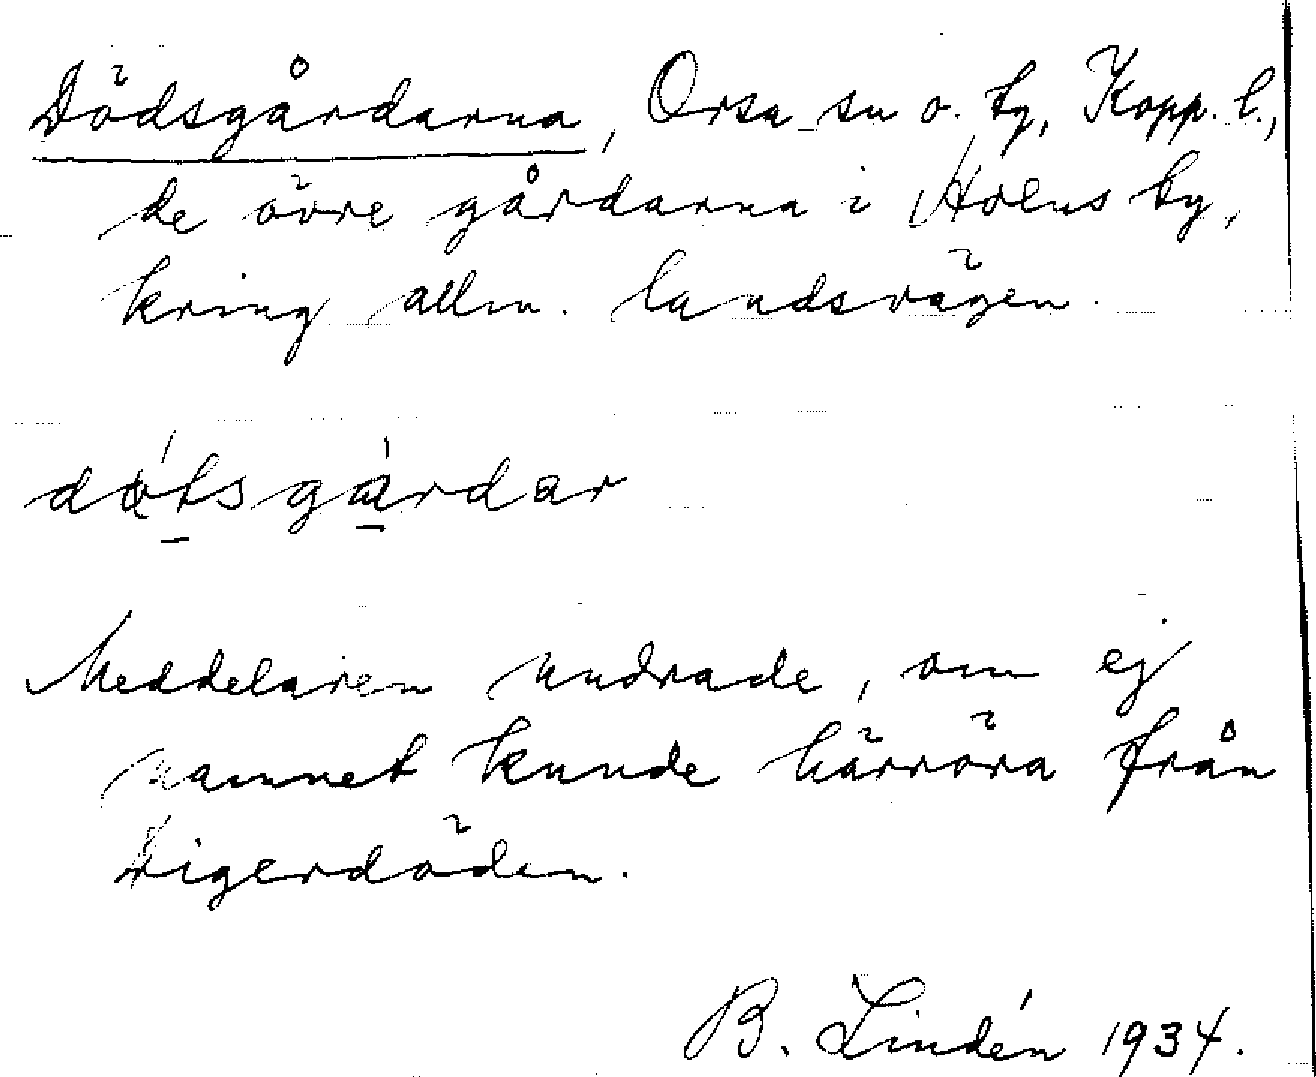 Dödsgårdarna, Orsa sn o. by, Kopp. l.,
de övre gårdarna i Holens by,
kring allm. landsvägen.
dötsgardar
Meddelaren undrade, om ej
namnet kunde härröra från
Digerdöden.
B. Lindén 1934.